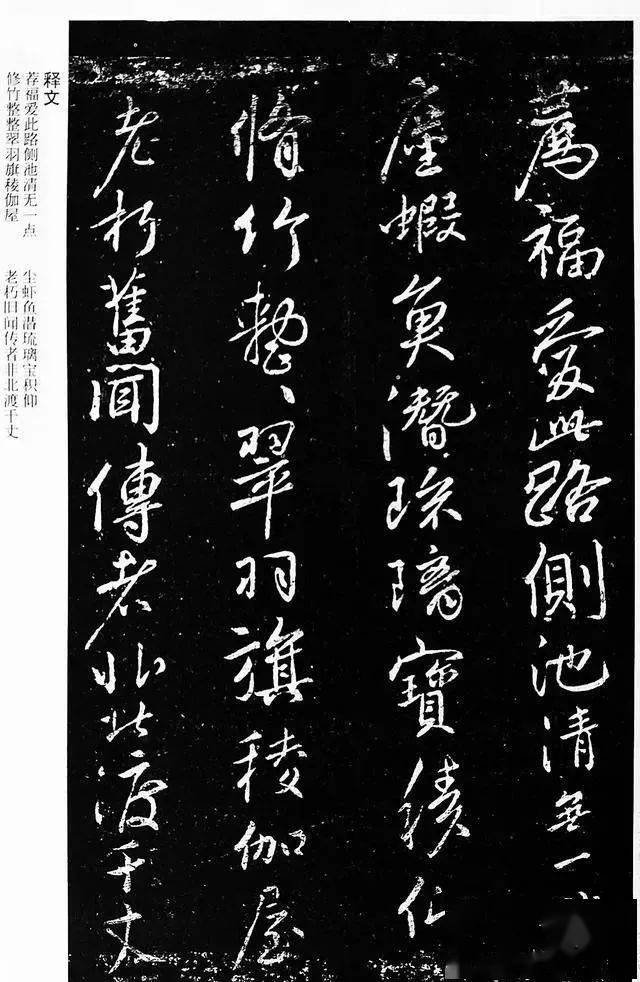 薦福愛此路側池清無一
塵蝦魚潛琉璃寶積仰
脩竹整〻翠羽旗稜伽屋
老朽舊聞傳者非北渡千丈
释文
荐福爱此路侧池清无一点 尘虾鱼潜琉璃宝积仰
修竹整整翠羽旗稜伽屋 老朽旧闻传者非北渡千丈